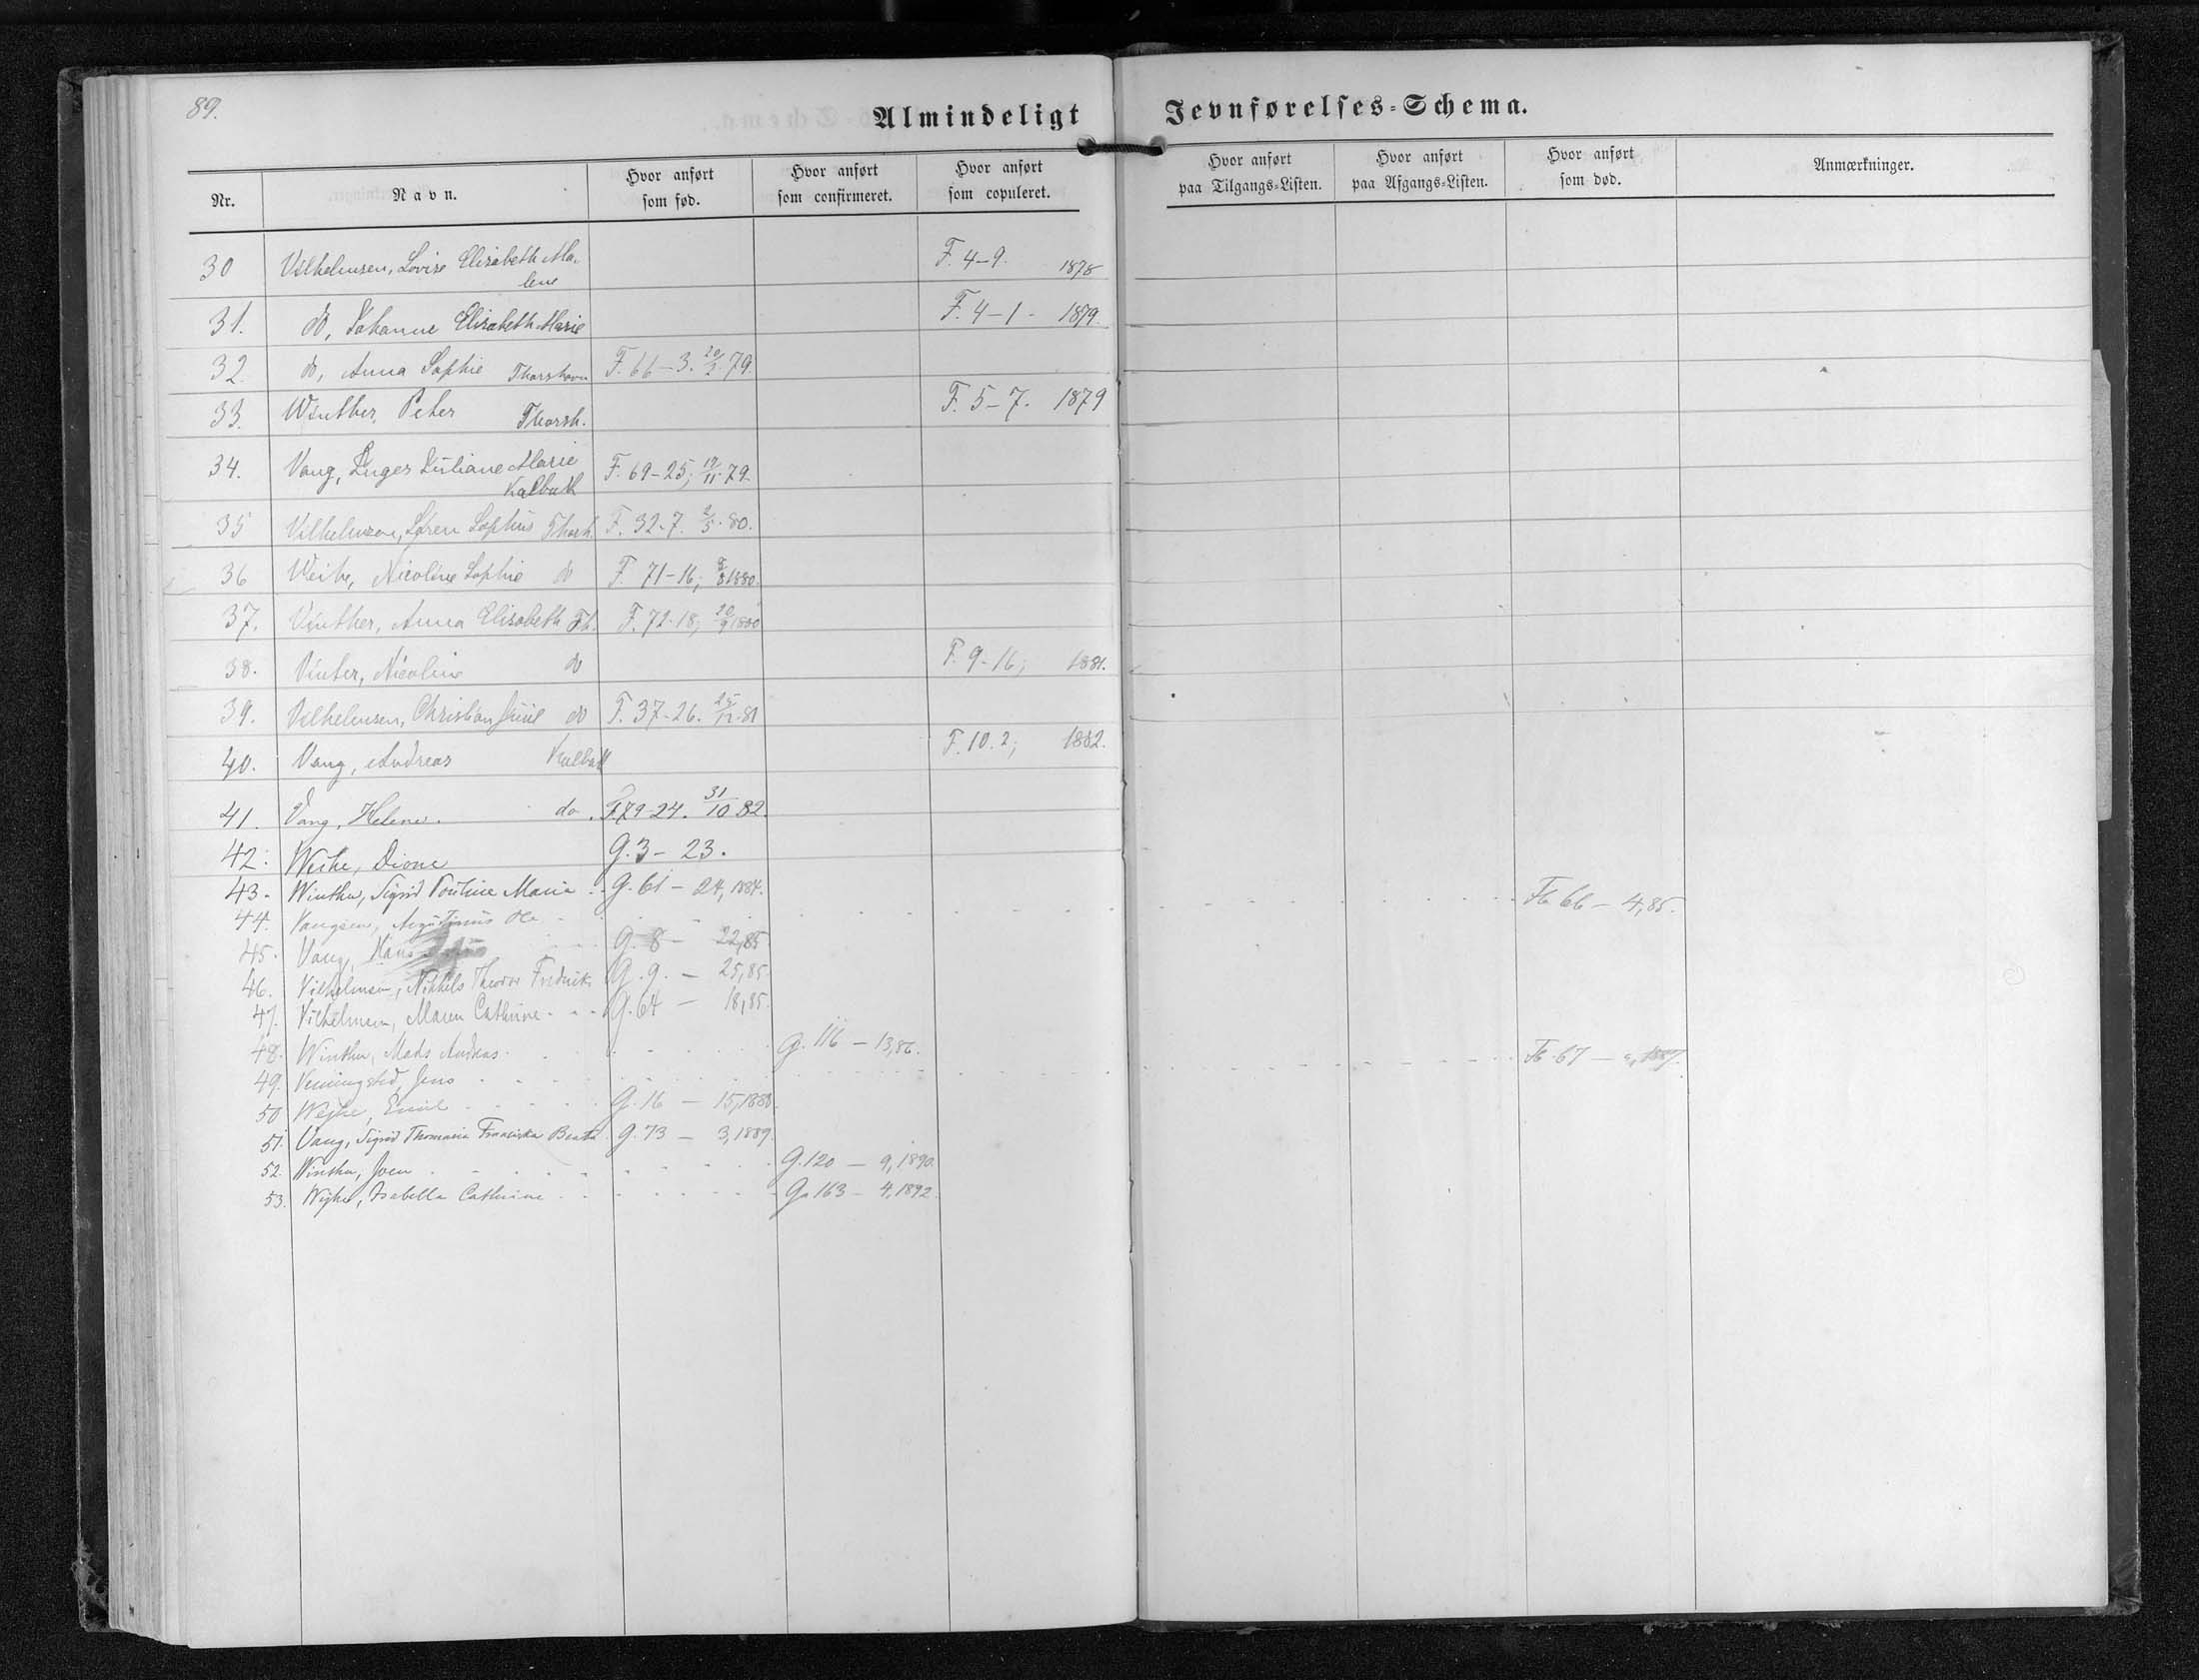 89.
Almindeligt Jevnførelses-Schema.
Nr. Navn. Hvor anført som fød. Hvor anført som confirmeret. Hvor anført som copuleret. Hvor anført paa Tilgangs-Listen. Hvor anført paa Afgangs-Listen. Hvor anført som død. Anmærkninger.
30 Vilhelmsen, Lovise Elisabeth Ma- F. 4-9. 1878
lene
31. do, Johanne Elisabeth Marie F. 4-1- 1879.
32. do, Anna Sophie Thorshavn F. 66-3. 20/3 79.
33. Winther, Peter Thorsh. F. 5-7. 1879
34. Vang, Inger Juliane Marie F. 69-25; 19/11 79.
Kalbak
35 Vilhelmsen, Søren Sophus Thorh. F. 32-7. 2/5 80.
36 Weihe, Nicoline Sophie do F. 71-16; 1880.
37. Vinther, Anna Elisabeth Th. F. 72-18; 20/9 1880
38. Vinter, Nicoline do F. 9-16; 1881.
39. Vilhelmsen, Christian Juul do F. 37-26. 25/12 81
40. Vang, Andreas Kalbak F. 10. 2; 1882.
41. Vang, Helene. do. F. 79-24. 31/10 82.
42. Weihe, Dione G. 3 - 23.
43. Winther, Sigrid Pouline Maria G. 61 - 24, 1884.
44. Vangsen, Ole Fb 66 - 4, 85.
45. Vang, Hans G. 8 - 22, 85
46. Vilhelmsen, Nikkels Theodor Fredrik G. 9. - 25, 85.
47. Vilhelmsen, Maren Cathrine G. 64 - 18, 85.
48. Winther, Mads Andreas G. 116 - 13, 86.
49. Venningsted, Jens Fb. 67 - 1887.
50 Wejhe, Emil G. 16 - 15, 1888.
51. Vang, Sigrid Thomasia Fransiska Beata G. 73 - 3, 1889.
52. Winther, Joen G. 120 - 9, 1890.
53. Wejhe, Isabella Cathrine G. 163 - 4, 1892.